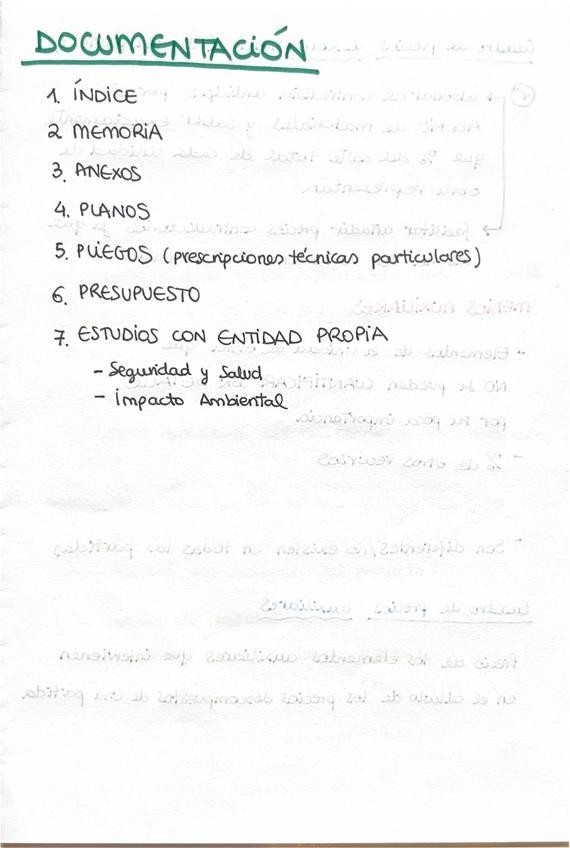 DOCUMENTACIÓN
1. ÍNDICE
2 MEMORIA
3. ANEXOS
4. PLANOS
5. PLIEGOS (prescripciones técnicas particulares)
6. PRESUPUESTO
7. ESTUDIOS CON ENTIDAD PROPIA
- Seguridad y Salud
- Impacto Ambiental